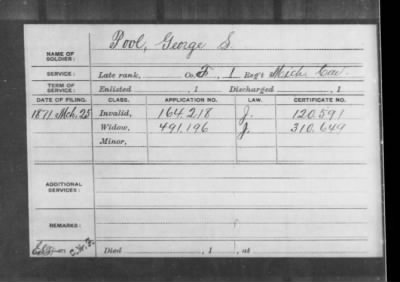 Pool, George S.
NAME OF SOLDIER:
SERVICE: Late rank, Co. F, 1 Reg't Mich. Cav.
TERM OF SERVICE: Enlisted , 1 Discharged , 1
DATE OF FILING. CLASS. APPLICATION NO. LAW. CERTIFICATE NO.
1871 Mch. 25 Invalid, 164.218 J. 120.591
Widow, 491.196 J. 310.649
Minor,
ADDITIONAL SERVICES:
REMARKS:
Died , 1 , at